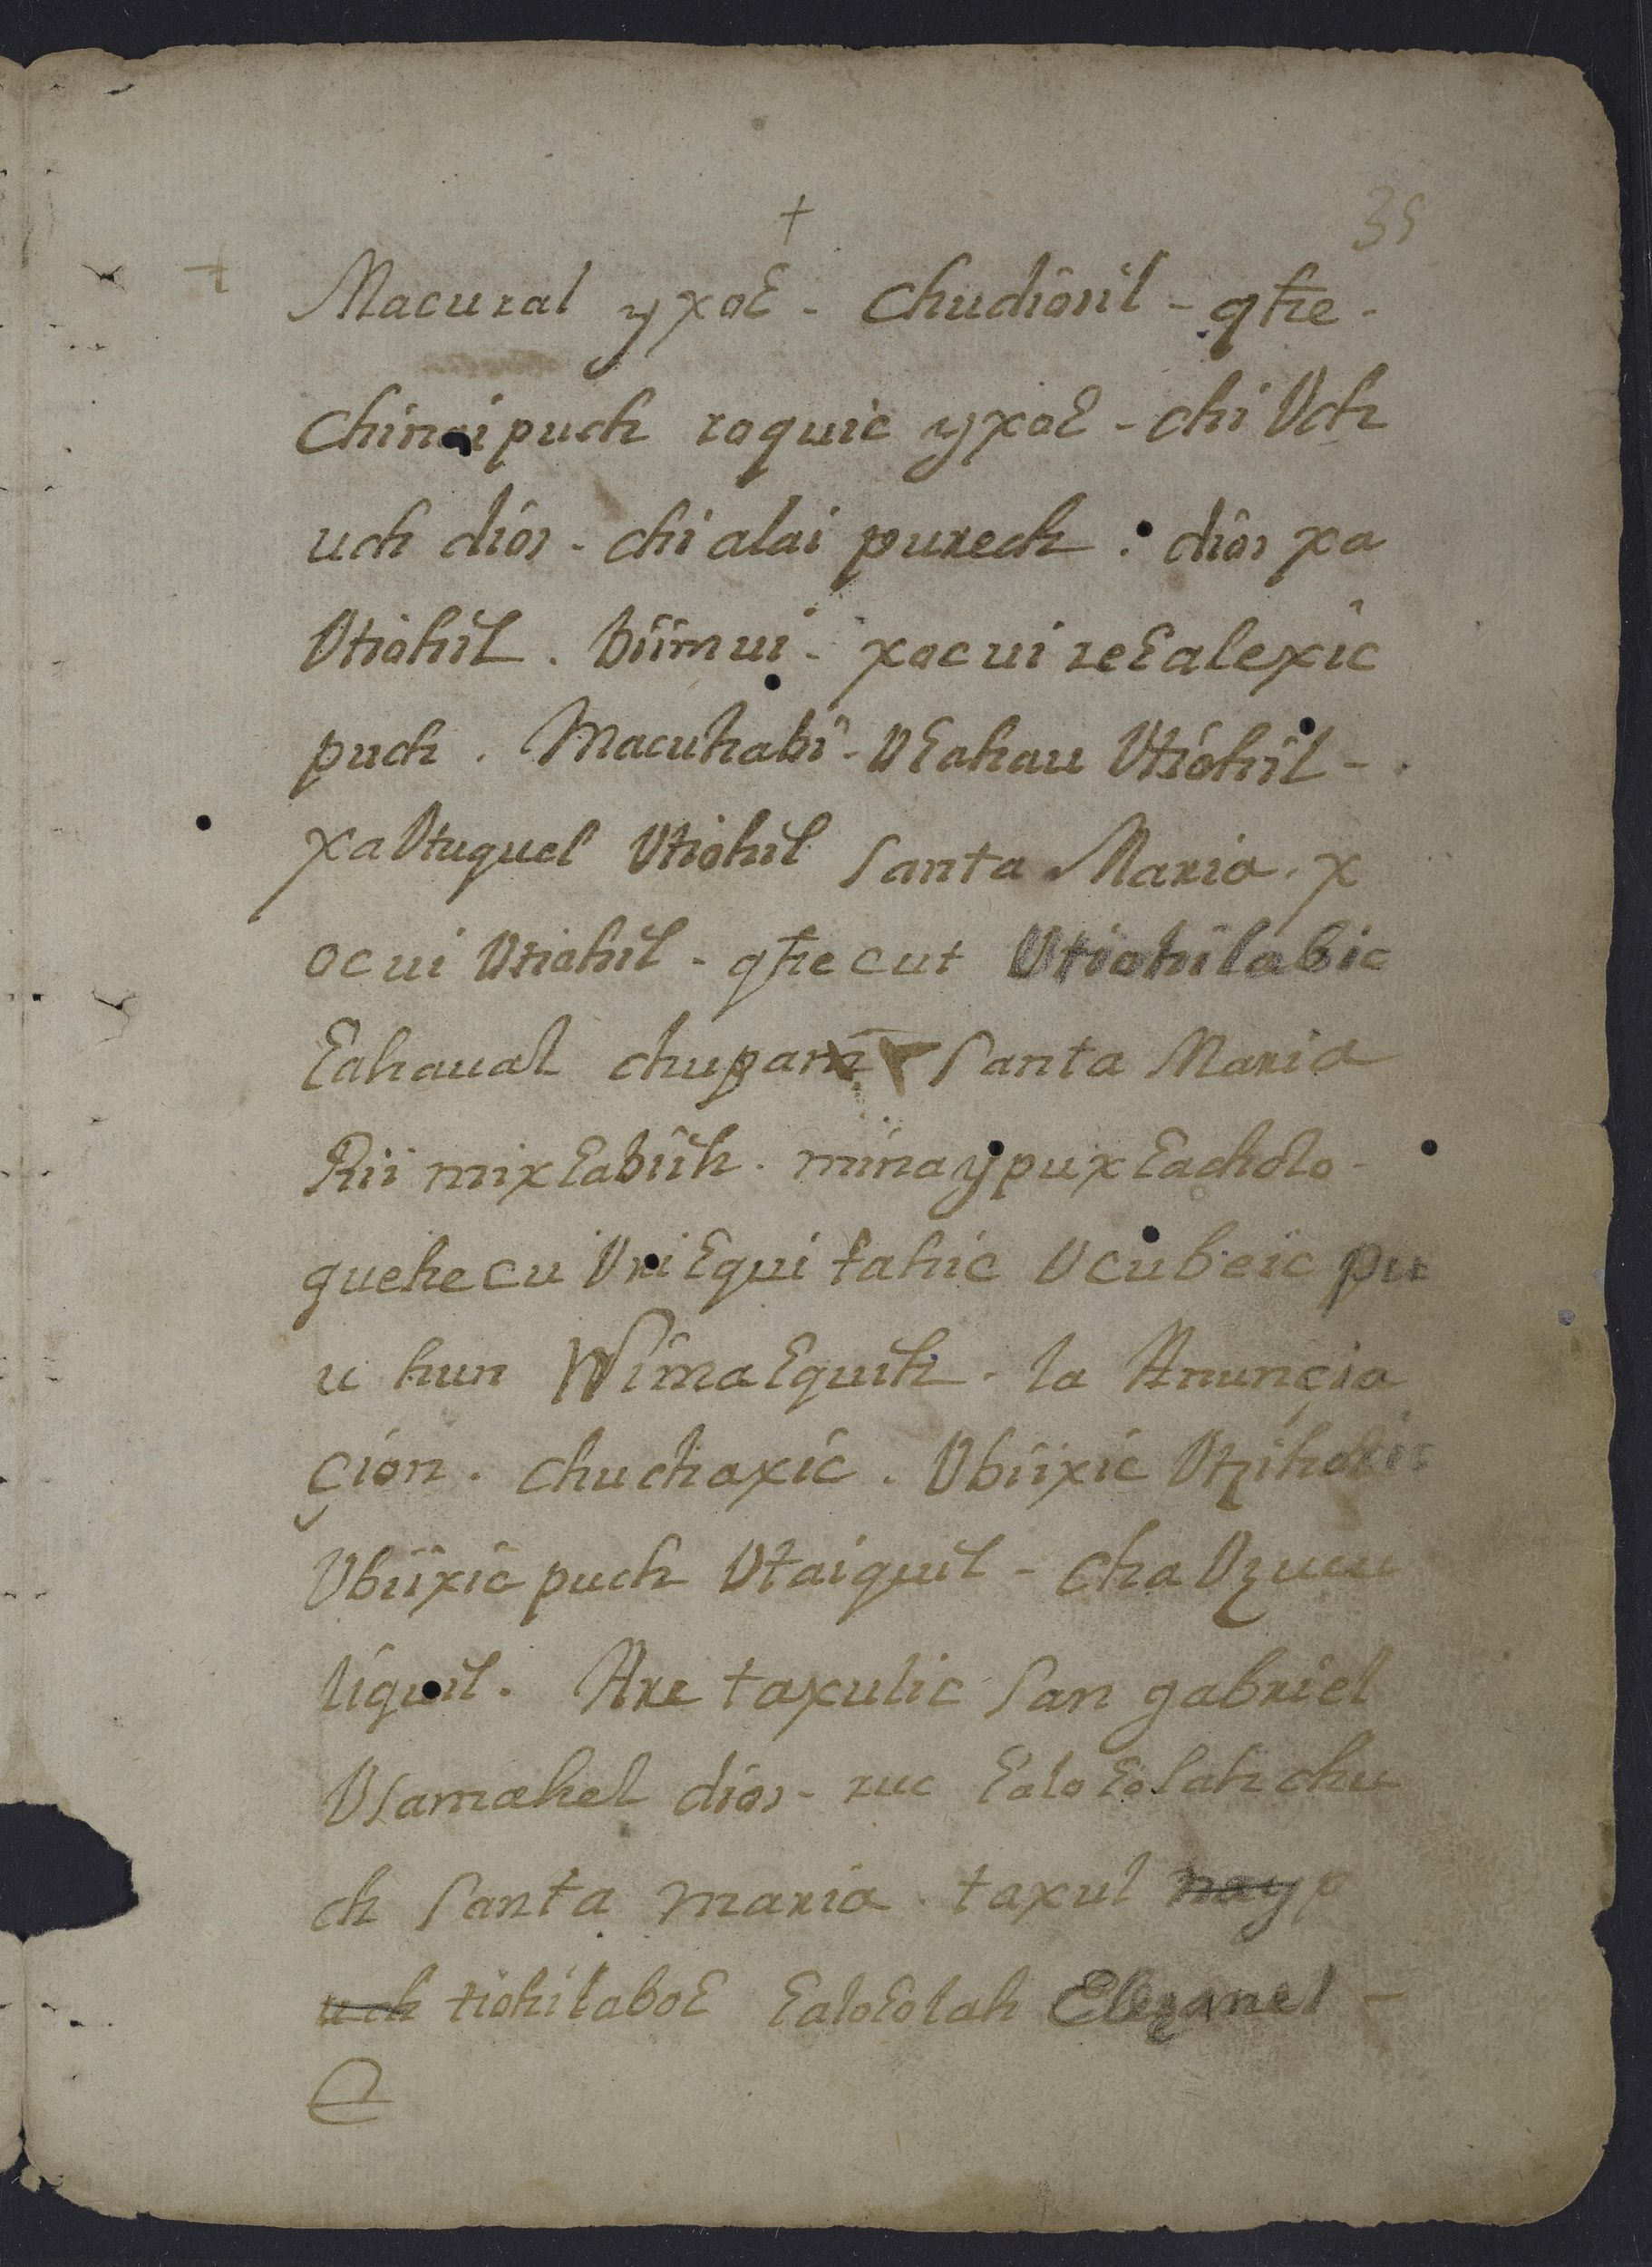 †
35
Macural yxoɛ - chudiosil - qħe -
chinai puch roquic yxoɛ - chi Vch
uch dios - chi alai purech . dios xa
Vtiohil . biim ui - xoc ui reɛalexic
puch . Macuhabi - Vɛahau Vtiohil -
xa Vtuquel Vtiohil Santa Maria . x
oc ui Vtiohil - qħe cut Vtiohilabic
ɛahaual chupam Santa Maria
Rii mixɛabiih . minaypuxɛacholo -
quehe cu Vri ɛqui tahic Vcubeic pu
u hun Wimaɛquih . la Anunçia
çion . chuchaxic . Vbiixic Vtzihoxic
Vbiixic puch Vtaiquil - cha Vzucu
liquil . Are taxulic San gabriel
Vsamahel dios - ruc ɛaloɛolah chu
ch Santa maria . taxul nayp
uch tiohilaboɛ ɛaloɛolah Elezanel -